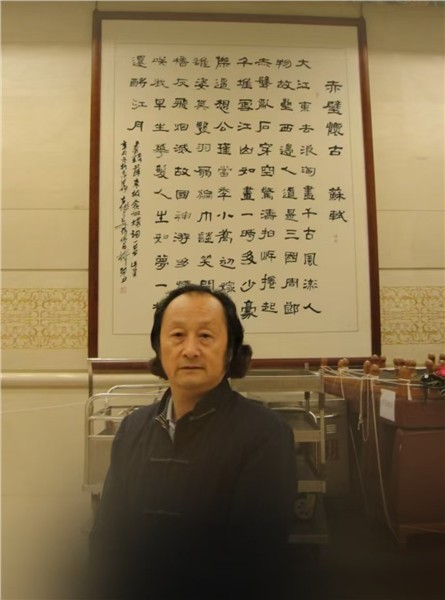 赤壁懷古 蘇軾
大江東去浪淘盡千古風流人
物故壘西邊人道是三國周郎
赤壁亂石穿空驚濤拍岸捲起
千堆雪江山如畫一時多少豪
傑遙想公瑾當年小喬初嫁
雄姿英發羽扇綸巾談笑間
櫓灰飛烟滅故國神游多情
笑我早生華髮人生如夢一
還酹江月